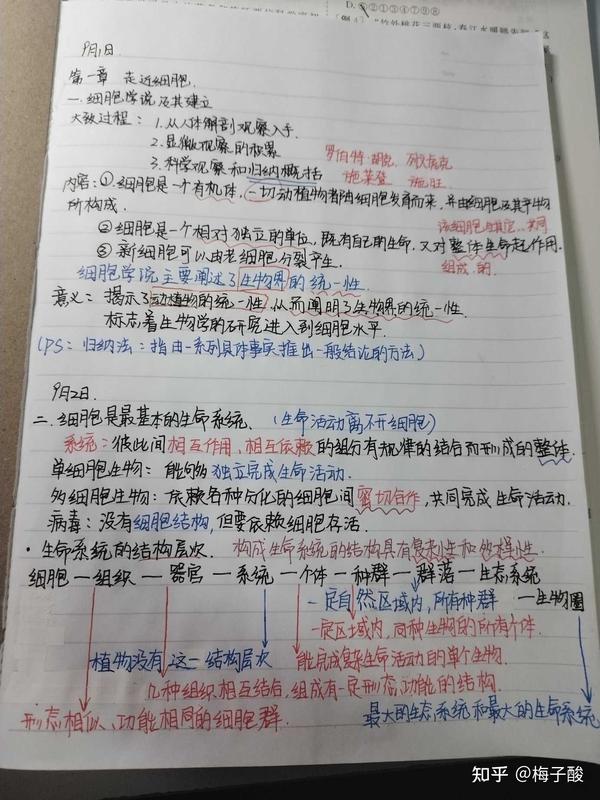 D.⑥②①③④⑦⑨⑧
9月1日
第一章 走近细胞.
一.细胞学说及其建立
大致过程：1.从人体解剖观察入手.
2.显微观察的积累
3.科学观察和归纳概括
罗伯特·胡克. 列文虎克
施莱登 施旺.
内容：①细胞是一个有机体，一切动植物都由细胞发育而来，并由细胞及其产物
所构成.
②细胞是一个相对独立的单位，既有自己的生命，又对整体生命起作用.
共同
组成的.
③新细胞可以由老细胞分裂产生.
细胞学说主要阐述了生物界的统一性.
意义：揭示了动植物的统一性，从而阐明了生物界的统一性.
标志着生物学的研究进入到细胞水平.
(PS：归纳法：指由一系列具体事实推出一般结论的方法)
9月2日.
二.细胞是最基本的生命系统.（生命活动离不开细胞）
系统：彼此间相互作用、相互依赖的组分有规律的结合而形成的整体.
单细胞生物：能够独立完成生命活动.
多细胞生物：依赖各种分化的细胞间密切合作，共同完成生命活动.
病毒：没有细胞结构，但要依赖细胞存活.
·生命系统的结构层次. 构成生命系统的结构具有复杂性和
细胞—组织—器官—系统—个体—种群—群落—生态系统
一定自然区域内，所有种群 —生物圈
一定区域内，同种生物的所有个体.
植物没有这一结构层次 能完成复杂生命活动的单个生物.
几种组织相互结合，组成有一定形态功能的结构.
形态相似、功能相同的细胞群. 最大的生态系统和最大的生命系统
知乎 @梅子酸